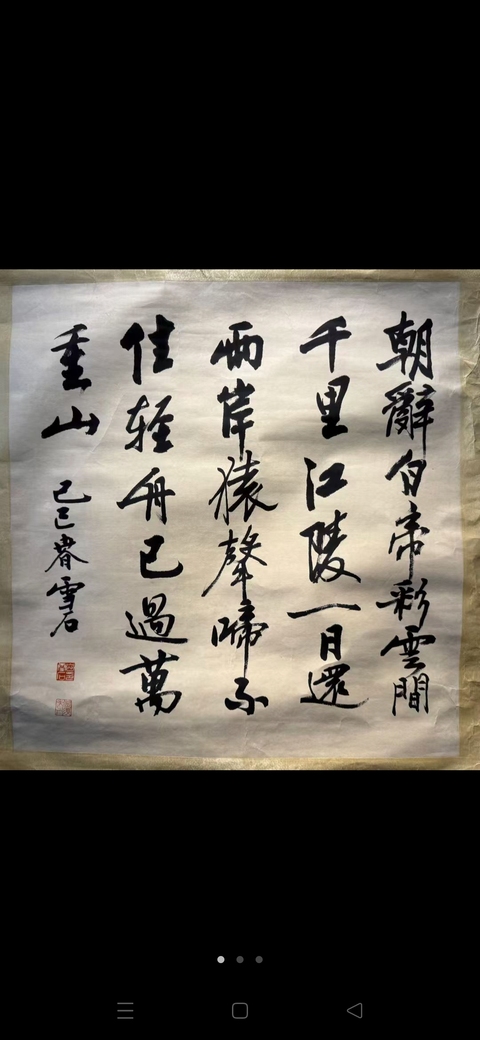 朝辭白帝彩雲間
千里江陵一日還
兩岸猿聲啼不
住輕舟已過萬
重山
己巳春雪石